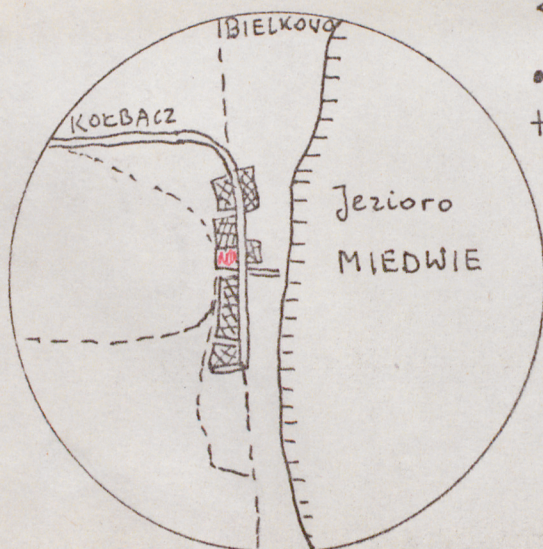 BIELKOWO
KOŁBACZ
Jezioro
MIEDWIE